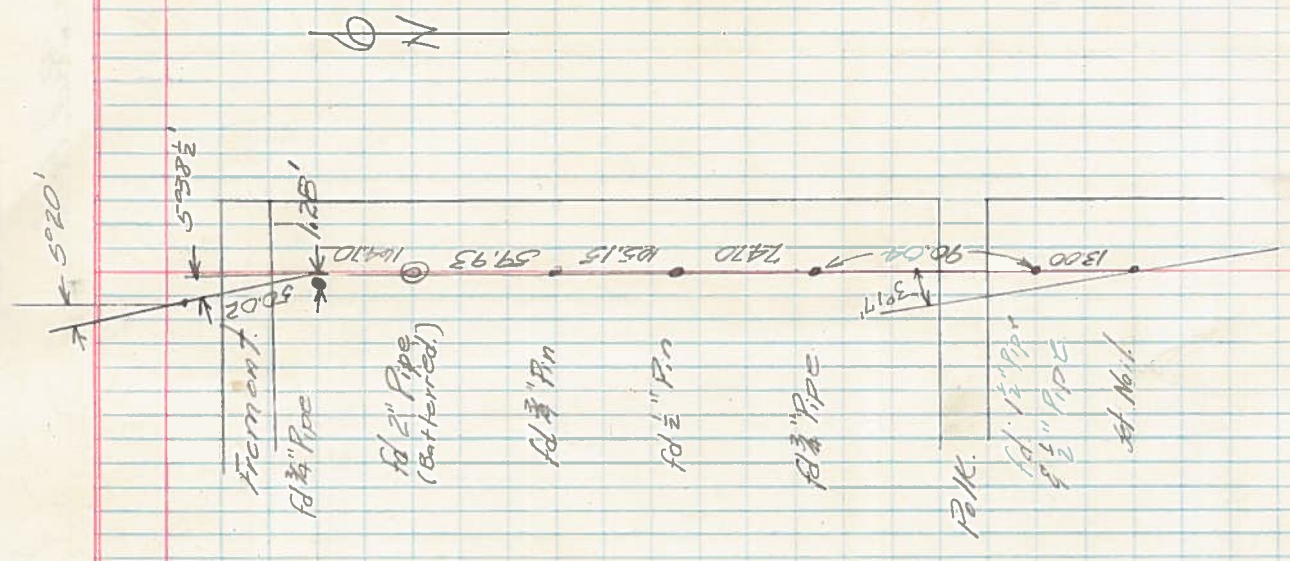 N
5°20'
5°38½'
1.25'
50.02
59.93
105.15
74.70
90.04
13.00
3°17'
Fremont.
fd ¾" Pipe
fd 2" Pipe
(Batterred.)
fd ¾" Pin
fd ½" Pin
fd ¾" Pipe
Polk.
Fd. 1½" Pipe
& ½" Pipe
Set Nail.